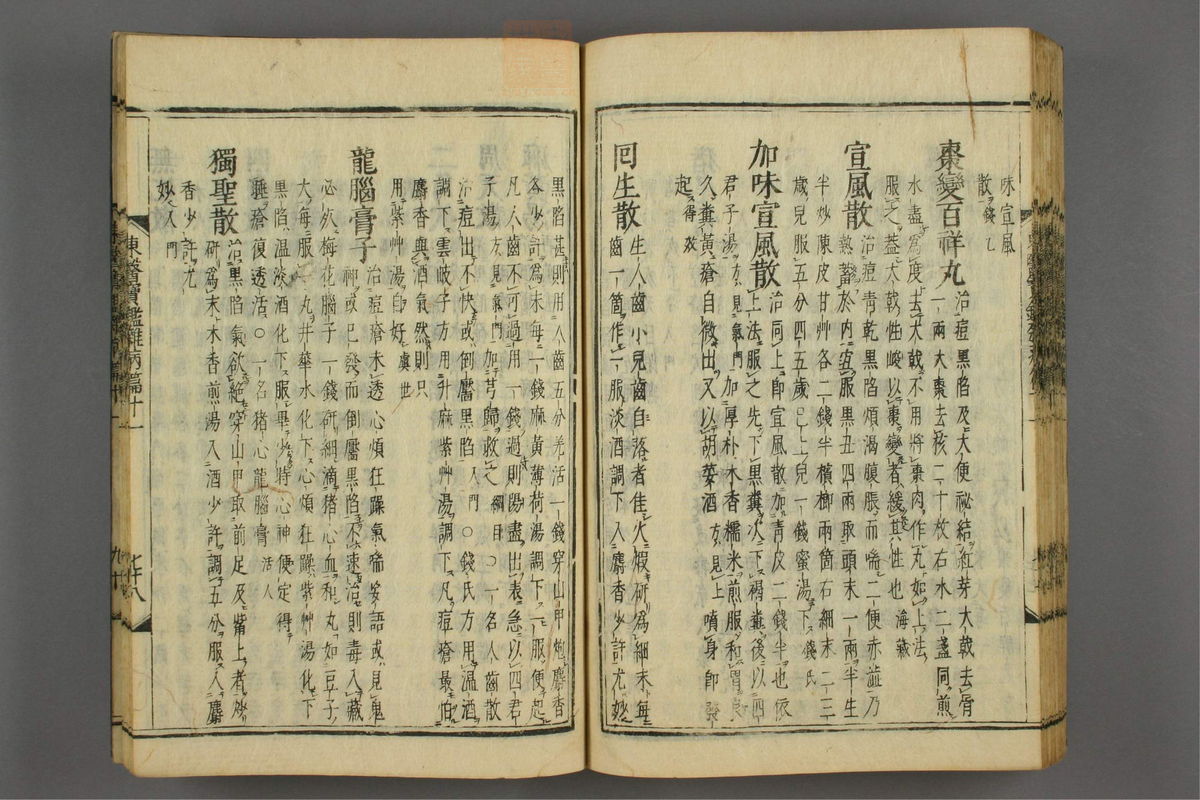 味宣風
散錢乙
棗變百祥丸治痘黑陷及大便祕結紅芽大戟去骨
一兩大棗去核二十枚右水二盞同煎
水盡爲度去大戟不用將棗肉作丸如上法
服之盖大戟性峻以棗變者緩其性也海藏
宣風散治痘靑乾黑陷煩渴腹脹而喘二便赤澁乃
熱蓄於內宜服黑丑四兩取頭末一兩半生
半炒陳皮甘艸各二錢半檳榔兩箇右細末二三
歲兒服五分四五歲已上兒一錢蜜湯下錢氏
加味宣風散治同上卽宣風散加靑皮二錢半也依
上法服之先下黑糞次下褐糞後以四
君子湯方見氣門加厚朴木香糯米煎服和胃良
久糞黃瘡自微出又以胡荽酒方見上噴身卽發
起得效
回生散生人齒小兒齒自落者佳火煆研爲細末每
齒一箇作一服淡酒調下入麝香少許尤妙
黑陷甚則用人齒五分羌活一錢穿山甲炮麝香
各少許爲末每一錢麻黃薄荷湯調下一服便起
凡人齒不可過用一錢過則陽盡出表急以四君
子湯方見氣門加芎歸救之綱目○一名人齒散
治痘出不快或倒黶黑陷入門○錢氏方用温酒
調下雲岐子方用升麻紫艸湯調下凡痘瘡最怕
麝香與酒氣然則只
用紫艸湯自好虞世
龍腦膏子治痘瘡未透心煩狂躁氣喘妄語或見鬼
神或已發而倒黶黑陷不速治則毒入藏
必死梅花腦子一錢硏細滴猪心血和丸如豆子
大每服一丸井華水化下心煩狂躁紫艸湯化下
黑陷温淡酒化下服畢少時心神便定得
睡瘡復透活○一名猪心龍腦膏活人
獨聖散治黑陷氣欲絶穿山甲取前足及觜上者炒
硏爲末木香煎湯入酒少許調五分服入麝
香少許尤
妙入門
東醫寶鑑雜病篇十一